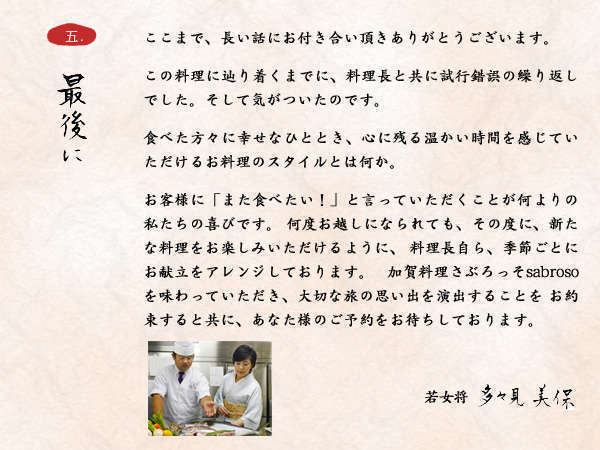 五.
最後に
ここまで、長い話にお付き合い頂きありがとうございます。
この料理に辿り着くまでに、料理長と共に試行錯誤の繰り返し
でした。そして気がついたのです。
食べた方々に幸せなひととき、心に残る温かい時間を感じてい
ただけるお料理のスタイルとは何か。
お客様に「また食べたい！」と言っていただくことが何よりの
私たちの喜びです。 何度お越しになられても、その度に、新た
な料理をお楽しみいただけるように、 料理長自ら、季節ごとに
お献立をアレンジしております。　加賀料理さぶろっそsabroso
を味わっていただき、大切な旅の思い出を演出することを お約
束すると共に、あなた様のご予約をお待ちしております。
若女将 多々見 美保